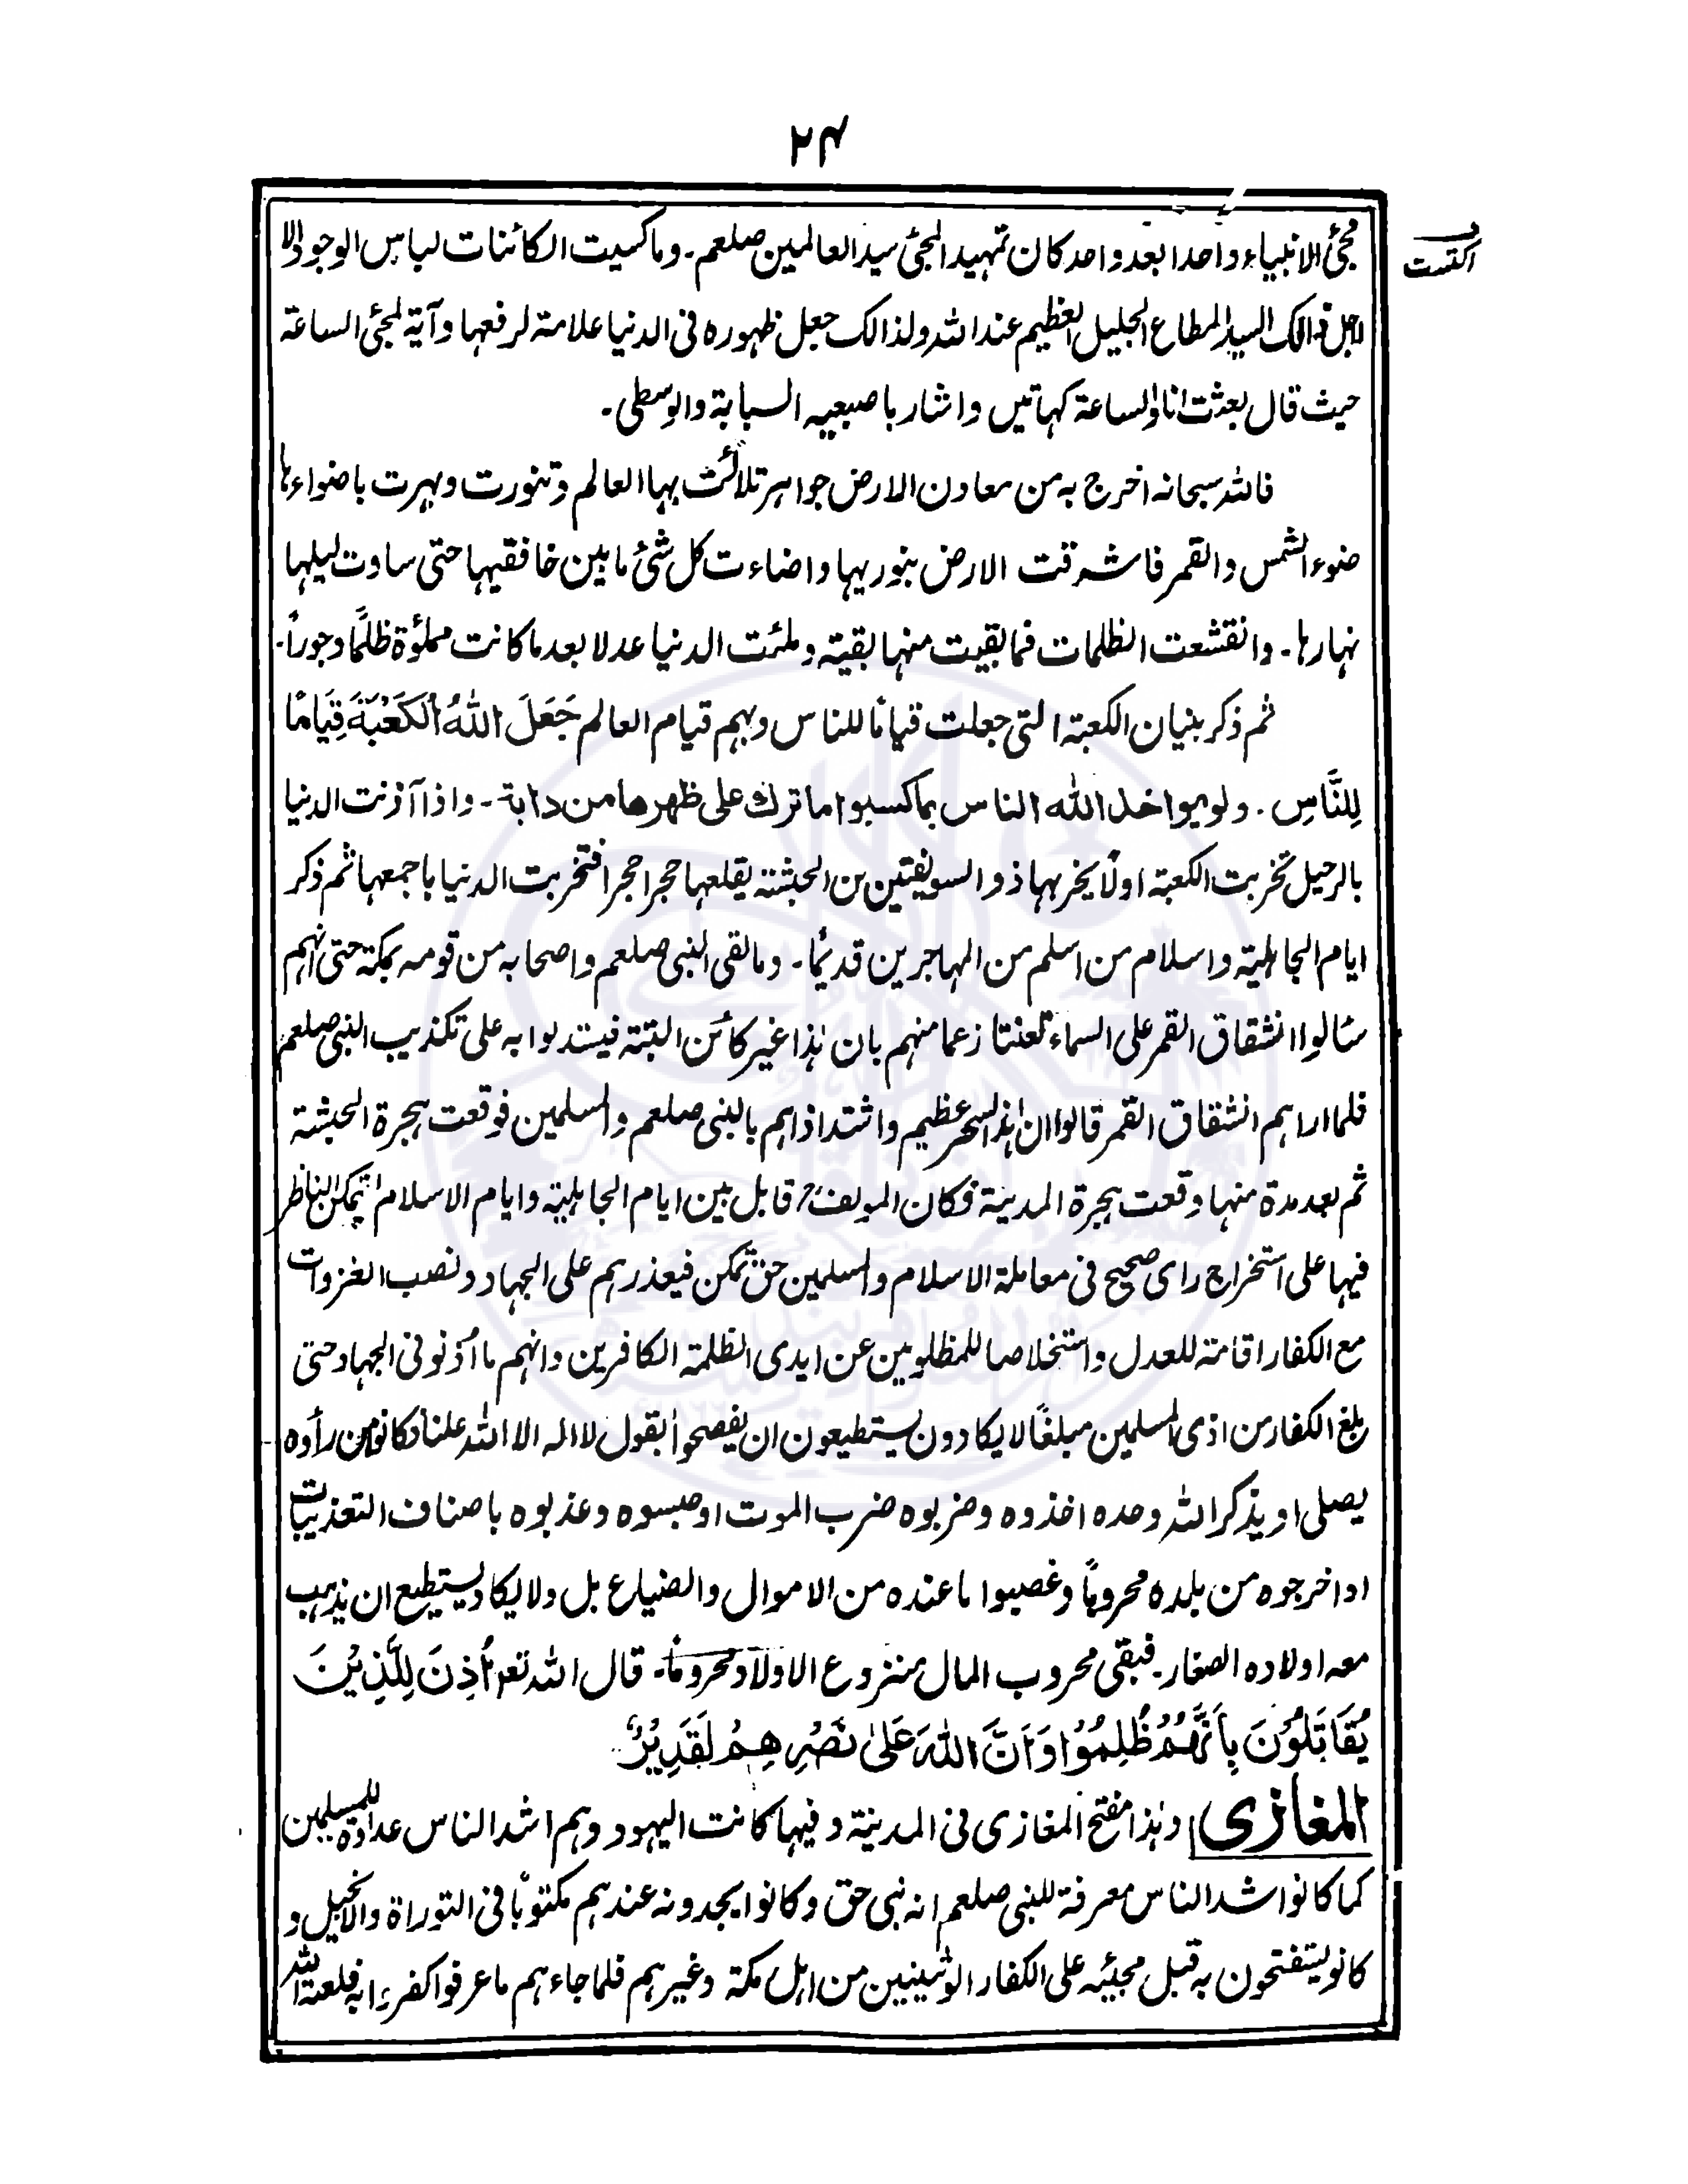 ۲۴
مجئ الانبياء واحدا بعد واحد كان تمهيدا لمجئ سيد العالمين صلعم۔ وما كسيت الكائنات لباس الوجود الا
اكتست
لاجل ذالك السيد المطاع الجليل العظيم عند الله ولذالك جعل ظهوره فى الدنيا علامة لرفعها وآية لمجئ الساعة
حيث قال بعثت انا والساعة كهاتين واشار باصبعيه السبابة والوسطى۔
فالله سبحانه اخرج به من معادن الارض جواهر تلألئت بها العالم وتنورت وبهرت باضواءها
ضوء الشمس والقمر فاشرقت الارض بنور بها واضاءت كل شئ ما بين خافقيها حتى ساوت ليلها
نهارها۔ وانقشعت الظلمات فما بقيت منها بقية وملئت الدنيا عدلا بعد ما كانت مملؤة ظلمًا وجورًا۔
ثم ذكر بنيان الكعبة التى جعلت قيامًا للناس وبهم قيام العالم جَعَلَ اللهُ الْكَعْبَةَ قِيَامًا
لِلنَّاسِ۔ ولو يواخذ الله الناس بما كسبوا ما ترك على ظهرها من دابة۔ واذا آذنت الدنيا
بالرحيل تخربت الكعبة اولًا يخربها ذو السويقتين من الحبشة يقلعها حجرا حجرا فتخربت الدنيا باجمعها ثم ذكر
ايام الجاهلية واسلام من اسلم من المهاجرين قديمًا۔ وما لقى النبى صلعم واصحابه من قومه بمكة حتى انهم
سئالوا انشقاق القمر على السماء تعنتا زعما منهم بان هٰذا غير كائن البتة فيستدلوا به على تكذيب النبى صلعم
فلما اراهم انشقاق القمر قالوا ان هٰذا لسحر عظيم واشتد اذاهم بالنبى صلعم والمسلمين فوقعت هجرة الحبشة
ثم بعد مدة منها وقعت هجرة المدينة فكان المولف قابل بين ايام الجاهلية وايام الاسلام ليتمكن الناظر
فيها على استخراج راى صحيح فى معاملة الاسلام والمسلمين حق تمكن فيعذرهم على الجهاد ونصب الغزوات
مع الكفار اقامة للعدل واستخلاصا للمظلومين عن ايدى الظلمة الكافرين وانهم ما اُذنو فى الجهاد حتى
بلغ الكفار من اذى المسلمين مبلغًا لا يكادون يستطيعون ان يفصحوا بقول لا اله الا الله علنًا فكانو من رأوه
يصلى او يذكر الله وحده اخذوه وضربوه ضرب الموت او حبسوه وعذبوه باصناف التعذيبات
او اخرجوه من بلده محرومًا وغصبوا ما عنده من الاموال والضياع بل ولا يكاد يستطيع ان يذهب
معه اولاده الصغار۔ فبقى محروب المال منزوع الاولاد محرومًا۔ قال الله تعه اُذِنَ لِلَّذِيْنَ
يُقَاتَلُوْنَ بِاَنَّهُمْ ظُلِمُوْا وَاَنَّ اللهَ عَلٰى نَصْرِهِمْ لَقَدِيْرٌ
المغازى وهٰذا مفتح المغازى فى المدينة وفيها كانت اليهود وهم اشد الناس عداوة للمسلمين
كما كانوا شد الناس معرفة للنبى صلعم انه نبى حق وكانوا يجدونه عندهم مكتوبًا فى التوراة والانجيل و
كانو يستفتحون به قبل مجيئه على الكفار الوثنيين من اهل مكة وغيرهم فلما جاءهم ما عرفوا كفروا به فلعنة الله